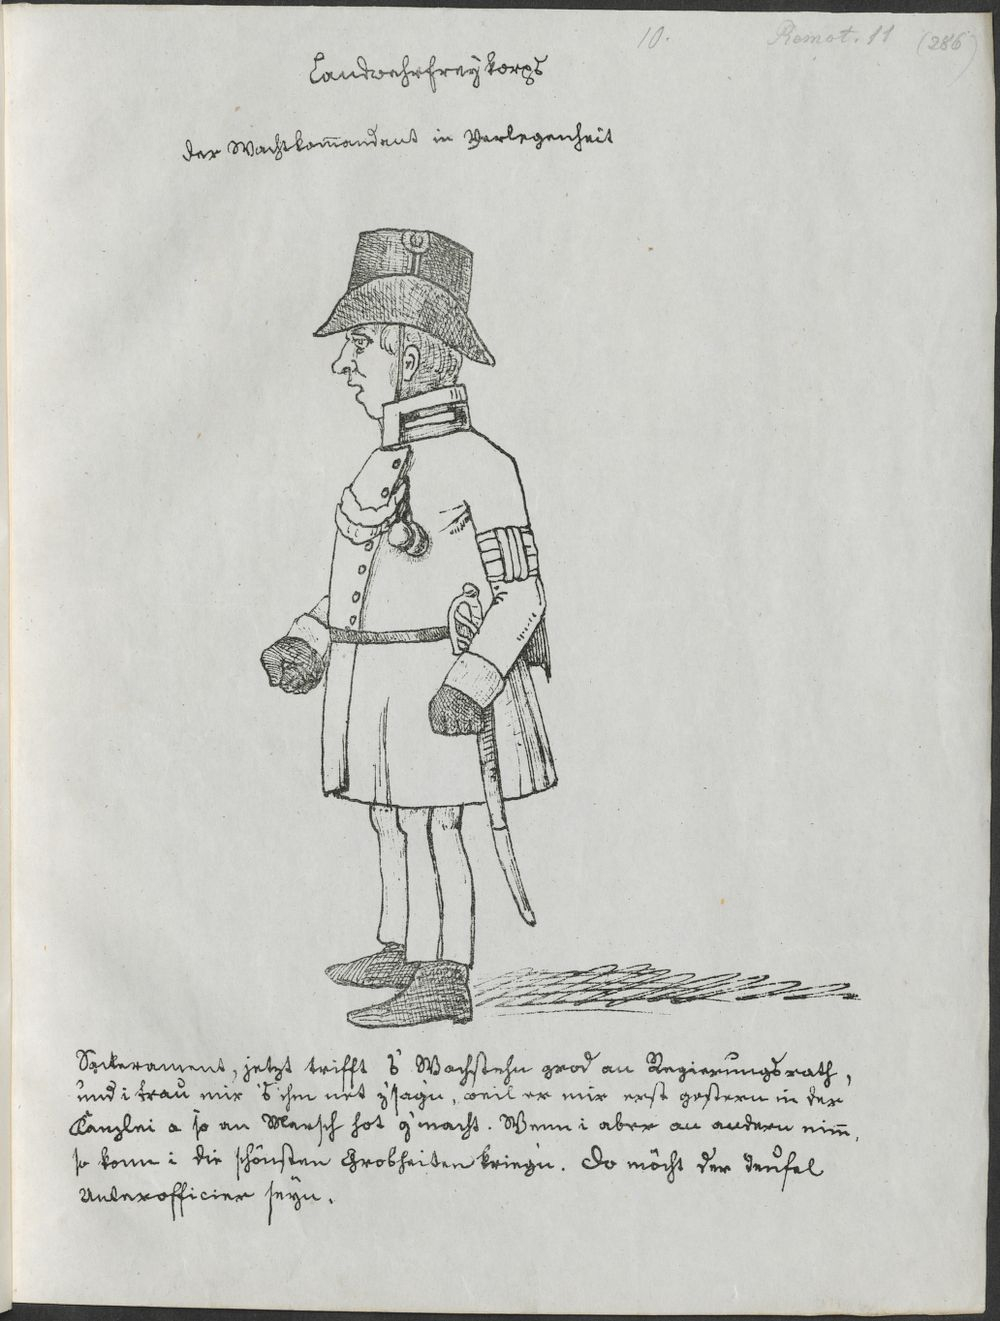 10.
Remot. 11 (286)
Landwehrfreykorps
Der Wachtkom̅andant in Verlegenheit
Sackerament, jetzt trifft 's Wachstehn grod an Regierungsrath,
und i trau mir 's ihm net z'sagn, weil er mir erst gestern in der
Canzlei a so an Marsch hot g'macht. Wenn i aber an andern nim̅,
so konn i die schönsten Grobheiten kriegn. Do möcht der deufel
Unterofficier seyn.